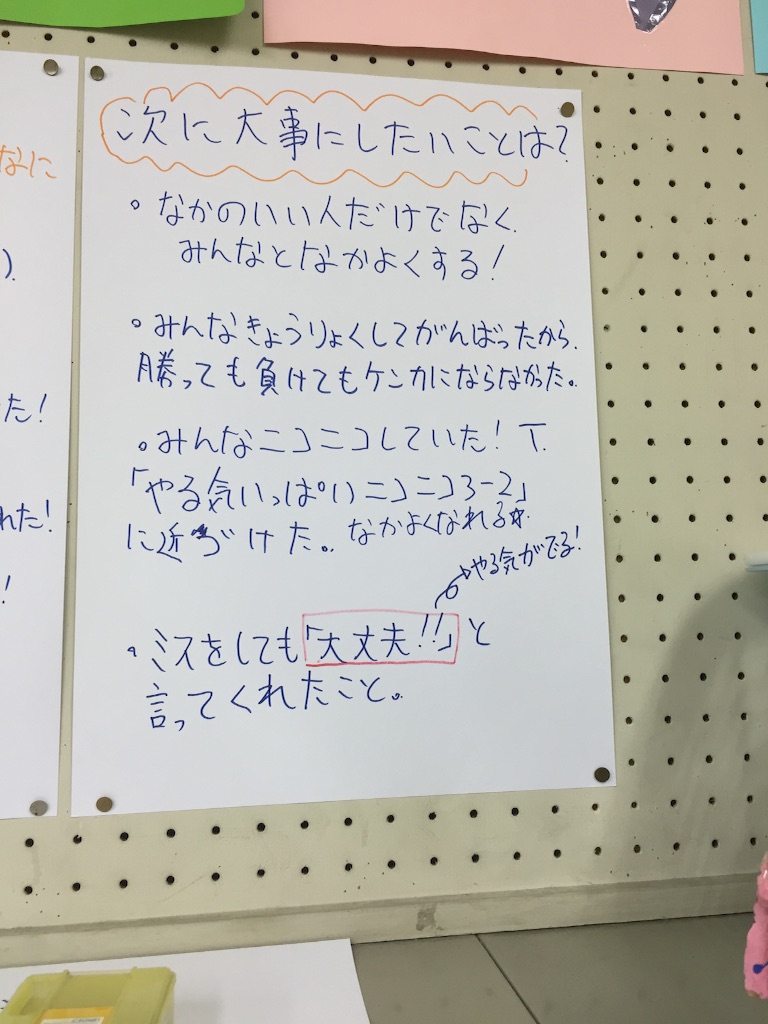 次に大事にしたいことは?
。なかのいい人だけでなく、
みんなとなかよくする!
。みんなきょうりょくしてがんばったから、
勝っても負けてもケンカにならなかった。
。みんなニコニコしていた!
「やる気いっぱいニコニコ3-2」
に近づけた。なかよくなれる☆
やる気がでる!
・ミスをしても「大丈夫!!」と
言ってくれたこと。
なに
).
た!
れた!
!